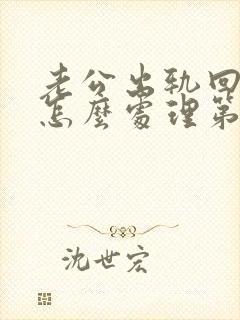 老公出轨回
怎麼處理第
沈世宏